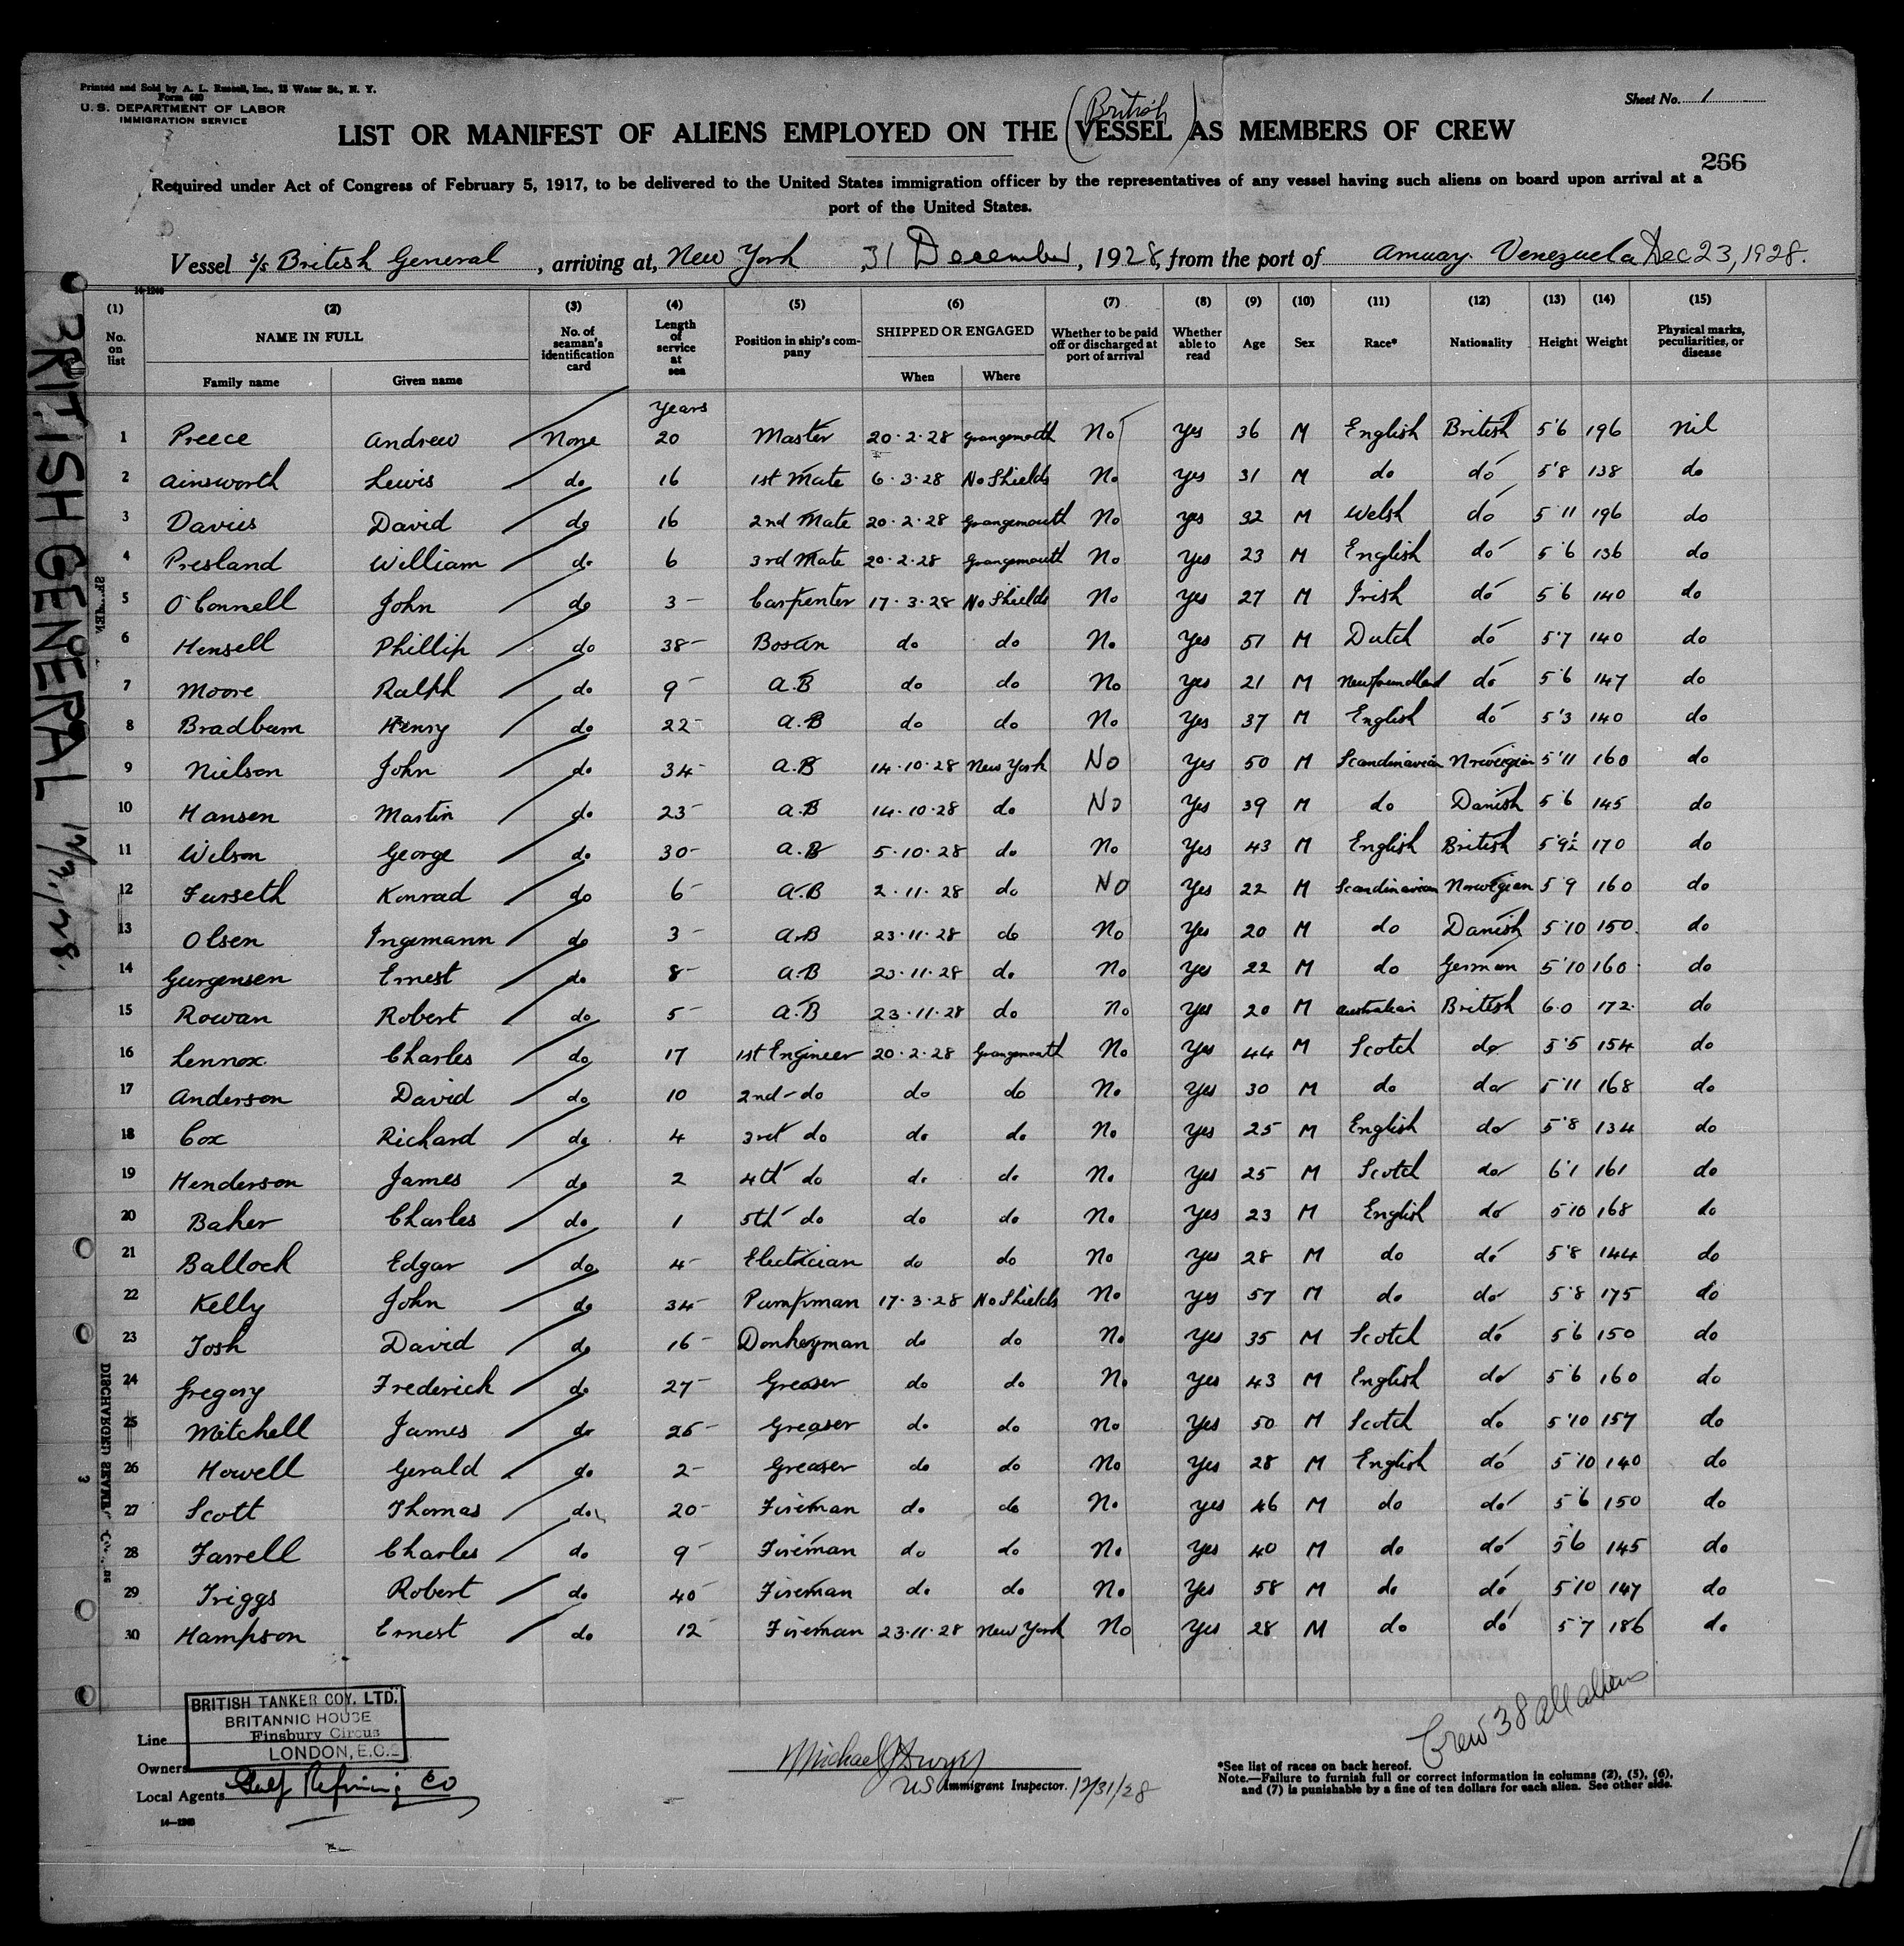 Printed and Sold by A. L. Russell, Inc., 13 Water St., N. Y.
Form 680
U. S. DEPARTMENT OF LABOR
IMMIGRATION SERVICE
Sheet No. 1
(British)
LIST OR MANIFEST OF ALIENS EMPLOYED ON THE VESSEL AS MEMBERS OF CREW
266
Required under Act of Congress of February 5, 1917, to be delivered to the United States immigration officer by the representatives of any vessel having such aliens on board upon arrival at a
port of the United States.
Vessel s/s British General, arriving at, New York, 31 December, 1928, from the port of Amuay Venezuela Dec 23, 1928.
BRITISH GENERAL
(1) No. on list
(2) NAME IN FULL Family name Given name
(3) No. of seaman's identification card
(4) Length of service at sea
(5) Position in ship's company
(6) SHIPPED OR ENGAGED When Where
(7) Whether to be paid off or discharged at port of arrival
(8) Whether able to read
(9) Age
(10) Sex
(11) Race*
(12) Nationality
(13) Height
(14) Weight
(15) Physical marks, peculiarities, or disease
Years
1 Preece Andrew None 20 Master 20·2·28 Grangemouth No Yes 36 M English British 5'6 196 Nil
2 Ainsworth Lewis do 16 1st Mate 6·3·28 No Shields No Yes 31 M do do 5'8 138 do
3 Davies David do 16 2nd Mate 20·2·28 Grangemouth No Yes 32 M Welsh do 5'11 196 do
4 Presland William do 6 3rd Mate 20·2·28 Grangemouth No Yes 23 M English do 5'6 136 do
5 O'Connell John do 3 Carpenter 17·3·28 No Shields No Yes 27 M Irish do 5'6 140 do
6 Hensell Phillip do 38 Bosun do do No Yes 51 M Dutch do 5'7 140 do
7 Moore Ralph do 9 A.B do do No Yes 21 M Newfoundland do 5'6 147 do
8 Bradburn Henry do 22 A.B do do No Yes 37 M English do 5'3 140 do
9 Nielson John do 34 A.B 14·10·28 New York No Yes 50 M Scandinavian Norwegian 5'11 160 do
10 Hansen Martin do 23 A.B 14·10·28 do No Yes 39 M do Danish 5'6 145 do
11 Wilson George do 30 A.B 5·10·28 do No Yes 43 M English British 5'9½ 170 do
12 Furseth Konrad do 6 A.B 2·11·28 do No Yes 22 M Scandinavian Norwegian 5'9 160 do
13 Olsen Ingemann do 3 A.B 23·11·28 do No Yes 20 M do Danish 5'10 150 do
14 Gurgensen Ernest do 8 A.B 23·11·28 do No Yes 22 M do German 5'10 160 do
15 Rowan Robert do 5 A.B 23·11·28 do No Yes 20 M Australian British 6·0 172 do
16 Lennox Charles do 17 1st Engineer 20·2·28 Grangemouth No Yes 44 M Scotch do 5'5 154 do
17 Anderson David do 10 2nd do do do No Yes 30 M do do 5'11 168 do
18 Cox Richard do 4 3rd do do do No Yes 25 M English do 5'8 134 do
19 Henderson James do 2 4th do do do No Yes 25 M Scotch do 6'1 161 do
20 Baker Charles do 1 5th do do do No Yes 23 M English do 5'10 168 do
21 Ballock Edgar do 4 Electrician do do No Yes 28 M do do 5'8 144 do
22 Kelly John do 34 Pumpman 17·3·28 No Shields No Yes 57 M do do 5'8 175 do
23 Tosh David do 16 Donkeyman do do No Yes 35 M Scotch do 5'6 150 do
24 Gregory Frederick do 27 Greaser do do No Yes 43 M English do 5'6 160 do
25 Mitchell James do 25 Greaser do do No Yes 50 M Scotch do 5'10 157 do
26 Howell Gerald do 2 Greaser do do No Yes 28 M English do 5'10 140 do
27 Scott Thomas do 20 Fireman do do No Yes 46 M do do 5'6 150 do
28 Farrell Charles do 9 Fireman do do No Yes 40 M do do 5'6 145 do
29 Triggs Robert do 40 Fireman do do No Yes 58 M do do 5'10 147 do
30 Hampson Ernest do 12 Fireman 23·11·28 New York No Yes 28 M do do 5'7 186 do
Crew 38 all aliens
BRITISH TANKER COY. LTD.
BRITANNIC HOUSE
Finsbury Circus
LONDON, E.C.2
Line
Owners
Local Agents Gulf Refining Co
Michael J Dwyer
US Immigrant Inspector. 12/31/28
*See list of races on back hereof.
Note.—Failure to furnish full or correct information in columns (2), (5), (6),
and (7) is punishable by a fine of ten dollars for each alien. See other side.